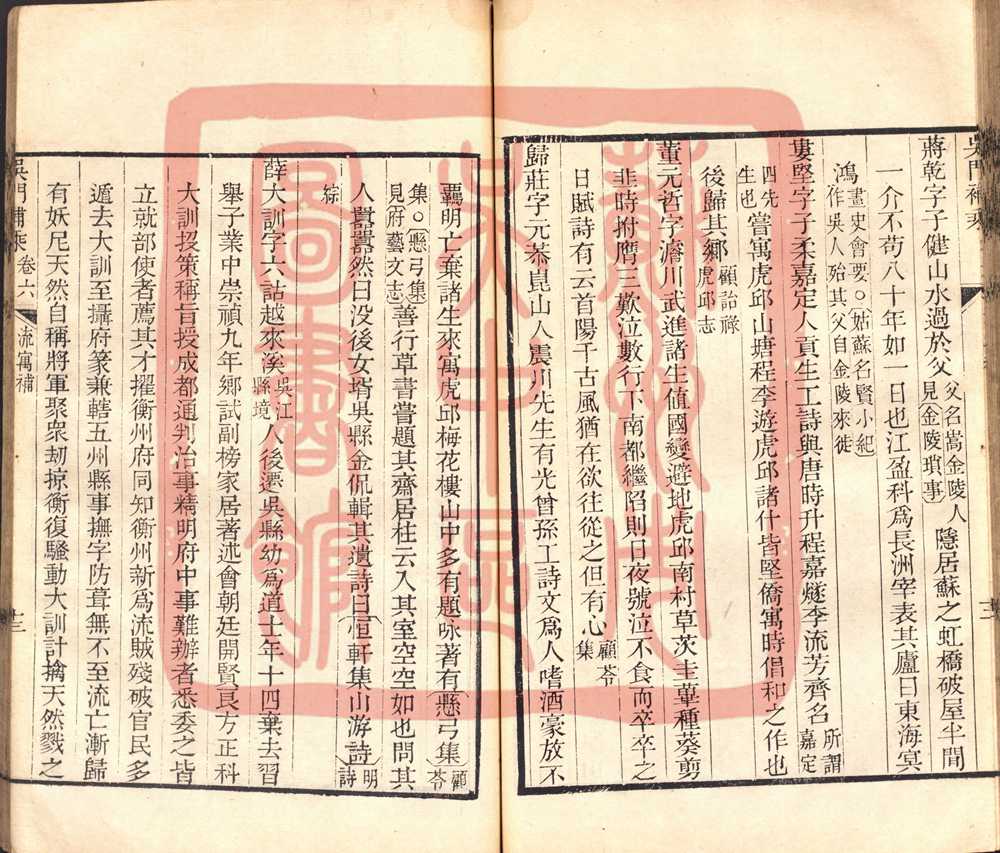 吳門補乘
蔣乾字子健山水過於父父名嵩金陵人見金陵瑣事隱居蘇之虹橋破屋半間
一介不苟八十年如一日也江盈科爲長洲宰表其廬曰東海冥
鴻畫史會要○姑蘇名賢小紀作吳人殆其父自金陵來徙
婁堅字子柔嘉定人貢生工詩與唐時升程嘉燧李流芳齊名所謂嘉定
四先生也嘗寓虎邱山塘程李遊虎邱諸什皆堅僑寓時倡和之作也
後歸其鄉顧詒祿虎邱志
董元哲字澹川武進諸生值國變避地虎邱南村草茨圭蓽種葵剪
韭時拊膺三歎泣數行下南都繼陷則日夜號泣不食而卒卒之
日賦詩有云首陽千古風猶在欲往從之但有心顧苓集
歸莊字元恭崑山人震川先生有光曾孫工詩文爲人嗜酒豪放不
羈明亡棄諸生來寓虎邱梅花樓山中多有題咏著有懸弓集顧苓
集○懸弓集見府藝文志善行草書嘗題其齋居柱云入其室空空如也問其
人囂囂然曰没後女壻吳縣金侃輯其遺詩曰恒軒集山游詩明詩
綜
薛大訓字六詁越來溪吳江縣境人後遷吳縣幼爲道士年十四棄去習
舉子業中崇禎九年鄉試副榜家居著述會朝廷開賢良方正科
大訓投策稱旨授成都通判治事精明府中事難辦者悉委之皆
立就部使者薦其才擢衡州府同知衡州新爲流賊殘破官民多
遁去大訓至攝府篆兼轄五州縣事撫字防葺無不至流亡漸歸
有妖尼天然自稱將軍聚衆刼掠衡復騷動大訓計擒天然戮之
吳門補乘 卷六 流寓補 十三